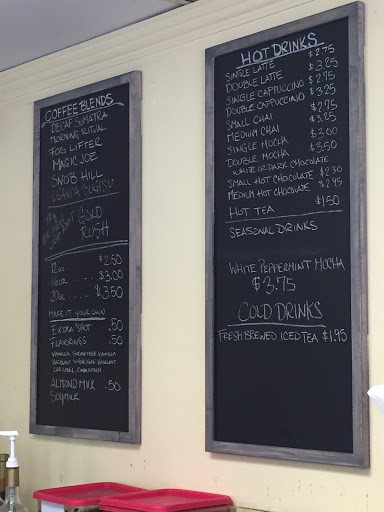 COFFEE BLENDS
DECAF SUMATRA
MORNING RITUAL
FOG LIFTER
MAGIC JOE
SNOB HILL
UGANDA BUGISU
GOLD
RUSH
12oz ... $2.50
16oz ... $3.00
20oz .... $3.50
MAKE IT YOUR OWN
EXTRA SHOT .50
FLAVORINGS .50
VANILLA SUGAR FREE VANILLA
HAZELNUT SUGAR FREE HAZELNUT
CARAMEL, CINNAMON
ALMOND MILK .50
SOY MILK
HOT DRINKS
SINGLE LATTE $2.75
DOUBLE LATTE $3.25
SINGLE CAPPUCCINO $2.75
DOUBLE CAPPUCCINO $3.25
SMALL CHAI $2.75
MEDIUM CHAI $3.25
SINGLE MOCHA $3.00
DOUBLE MOCHA $3.50
WHITE OR DARK CHOCOLATE
SMALL HOT CHOCOLATE $2.30
MEDIUM HOT CHOCOLATE $2.95
HOT TEA $1.50
SEASONAL DRINKS
WHITE PEPPERMINT MOCHA
$3.75
COLD DRINKS
FRESH BREWED ICED TEA $1.95